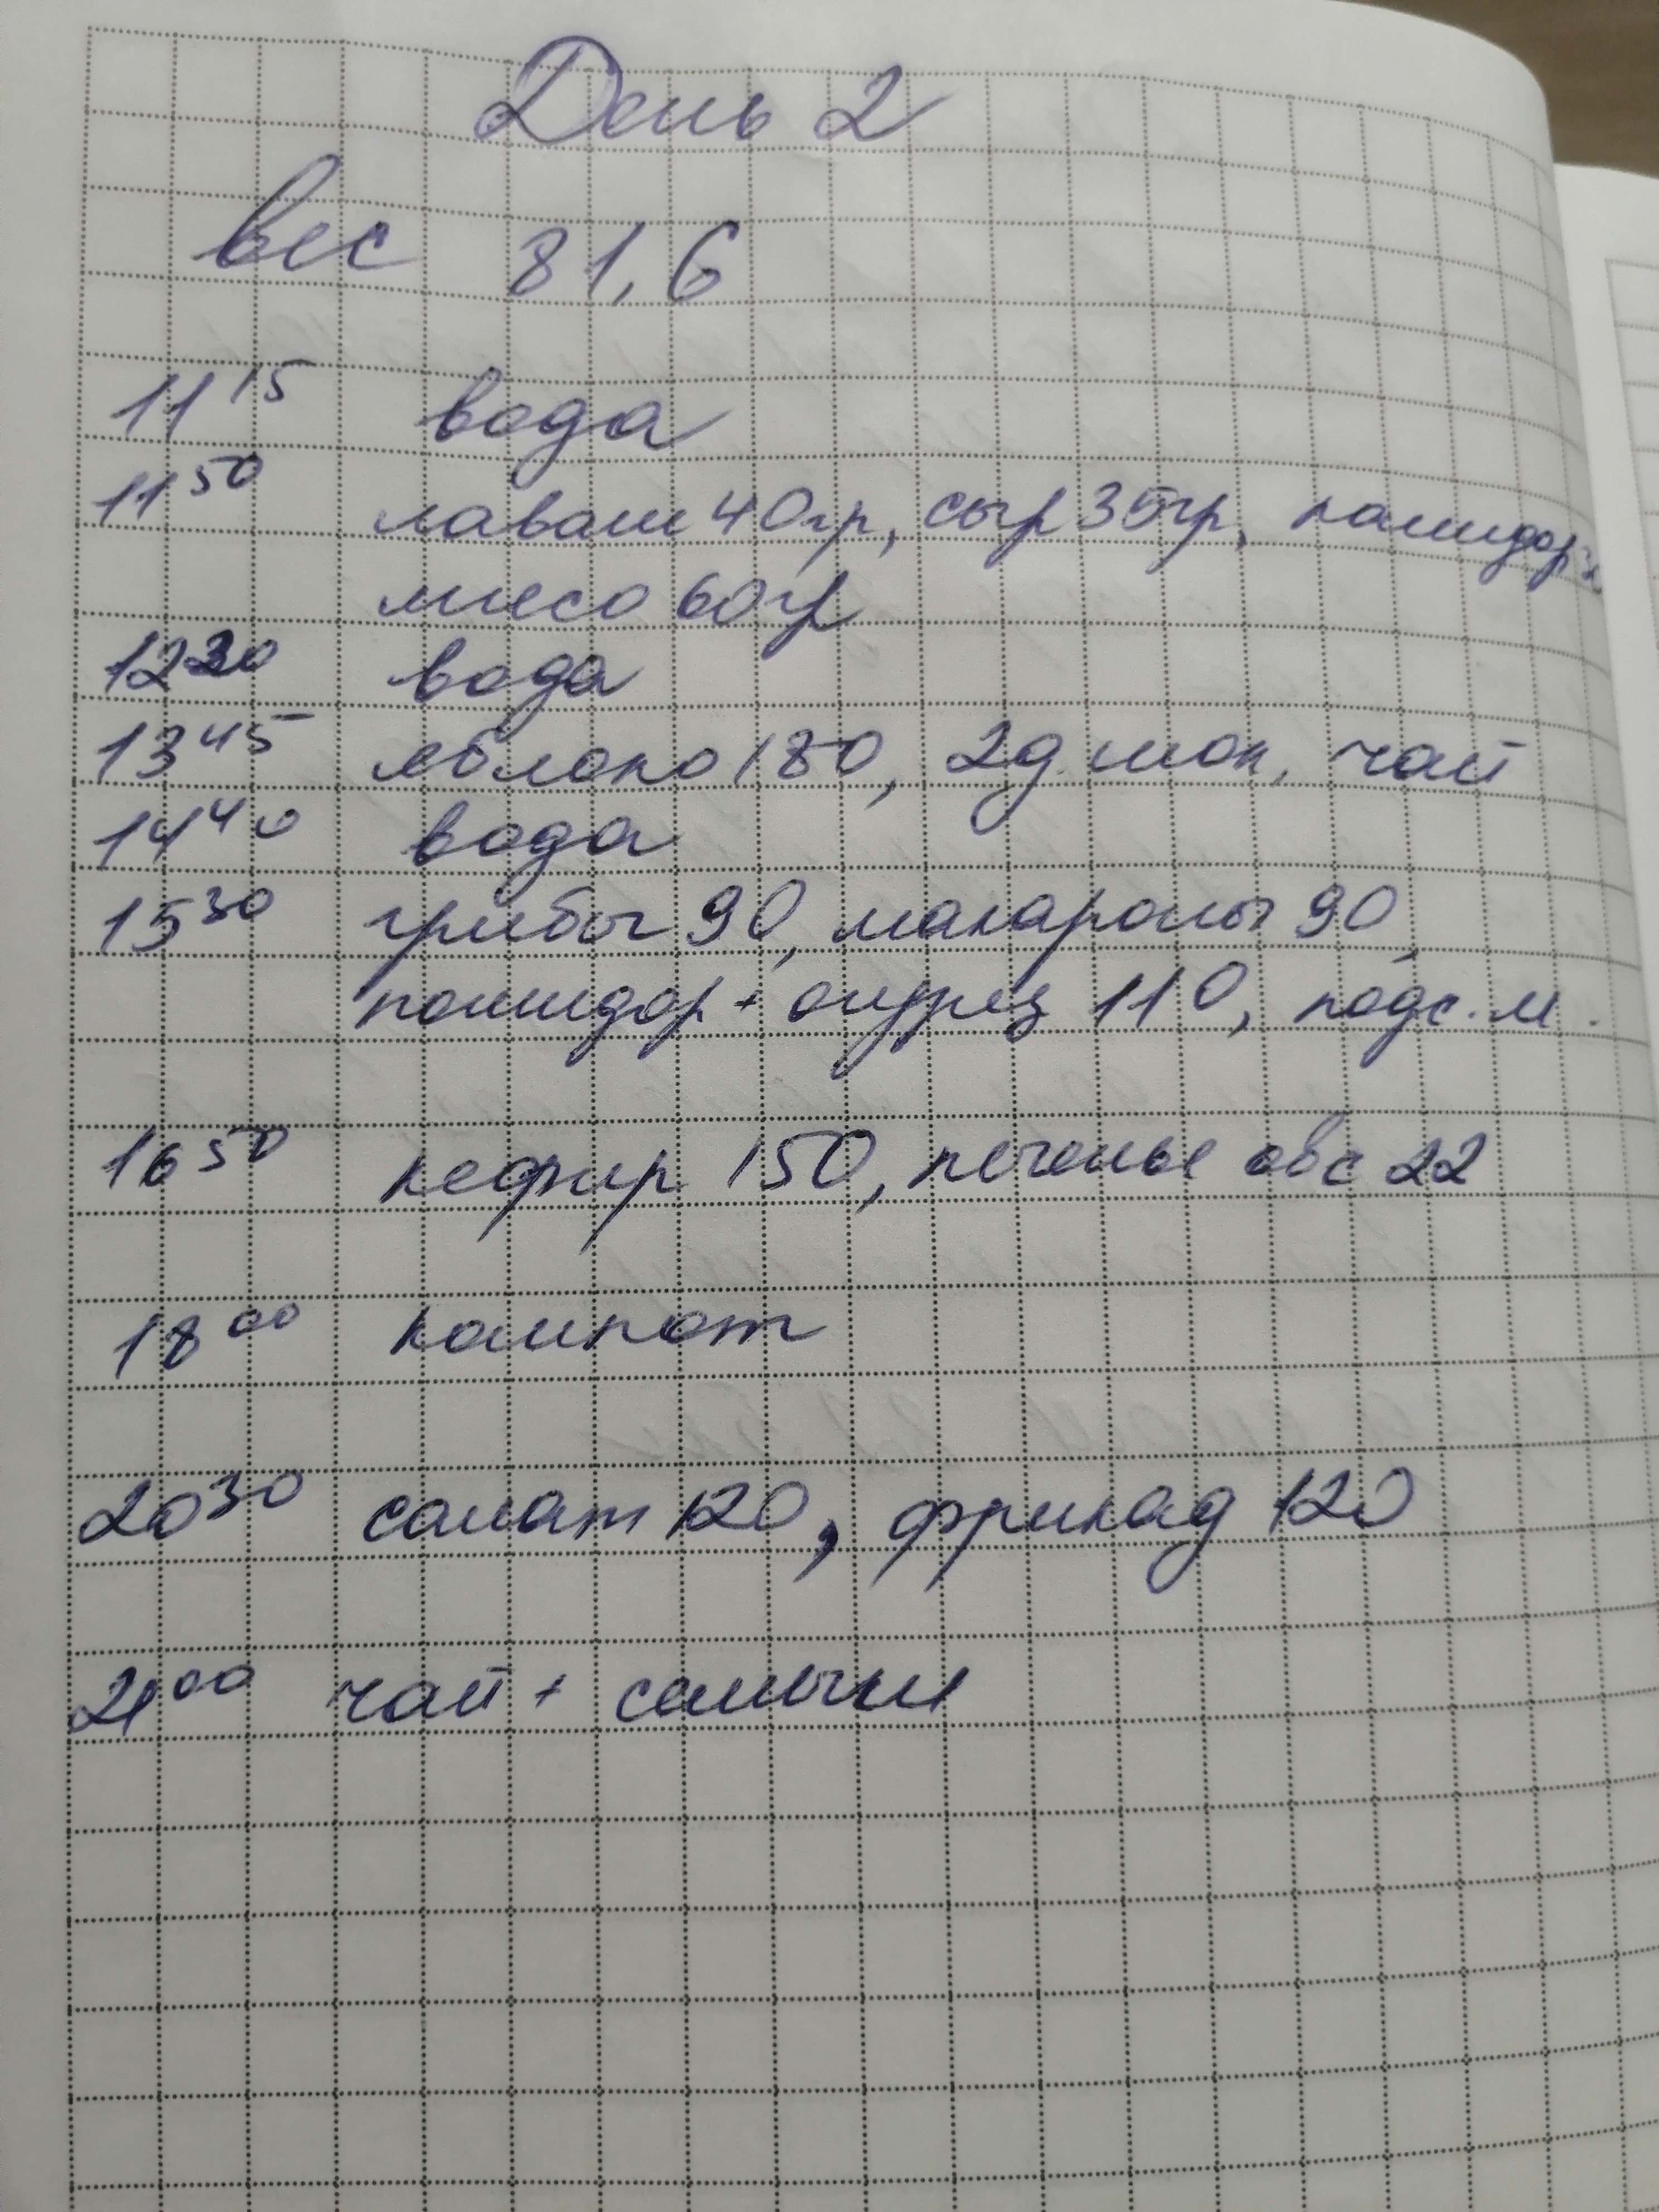 День 2
вес 81,6
11 15 вода
11 50 лаваш 40гр, сыр 35гр, помидор
мясо 60гр
12 30 вода
13 45 яблоко 180, 2д. шок, чай
14 40 вода
15 30 грибы 90, макароны 90,
помидор + огурец 110, подс. м.
16 50 кефир 150, печенье овс 22
18 00 компот
20 30 салат 120, фрикад 120
21 00 чай +